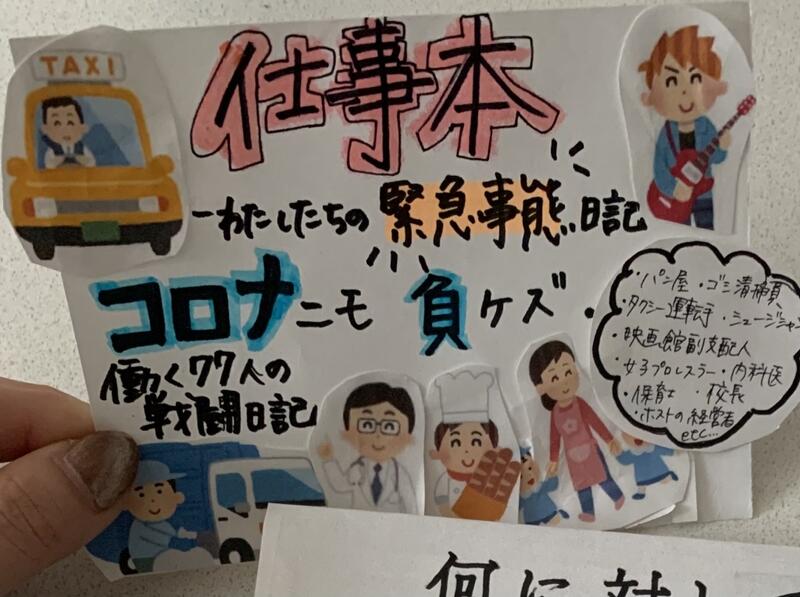 TAXI
仕事本
－わたしたちの緊急事態日記
コロナニモ 負ケズ・
働く77人の
戦闘日記
・パン屋 ・ゴミ清掃員
・タクシー運転手 ・ミュージシャン
・映画館副支配人
・女子プロレスラー ・内科医
・保育士 ・校長
・ホストの経営者
etc...
何に対し